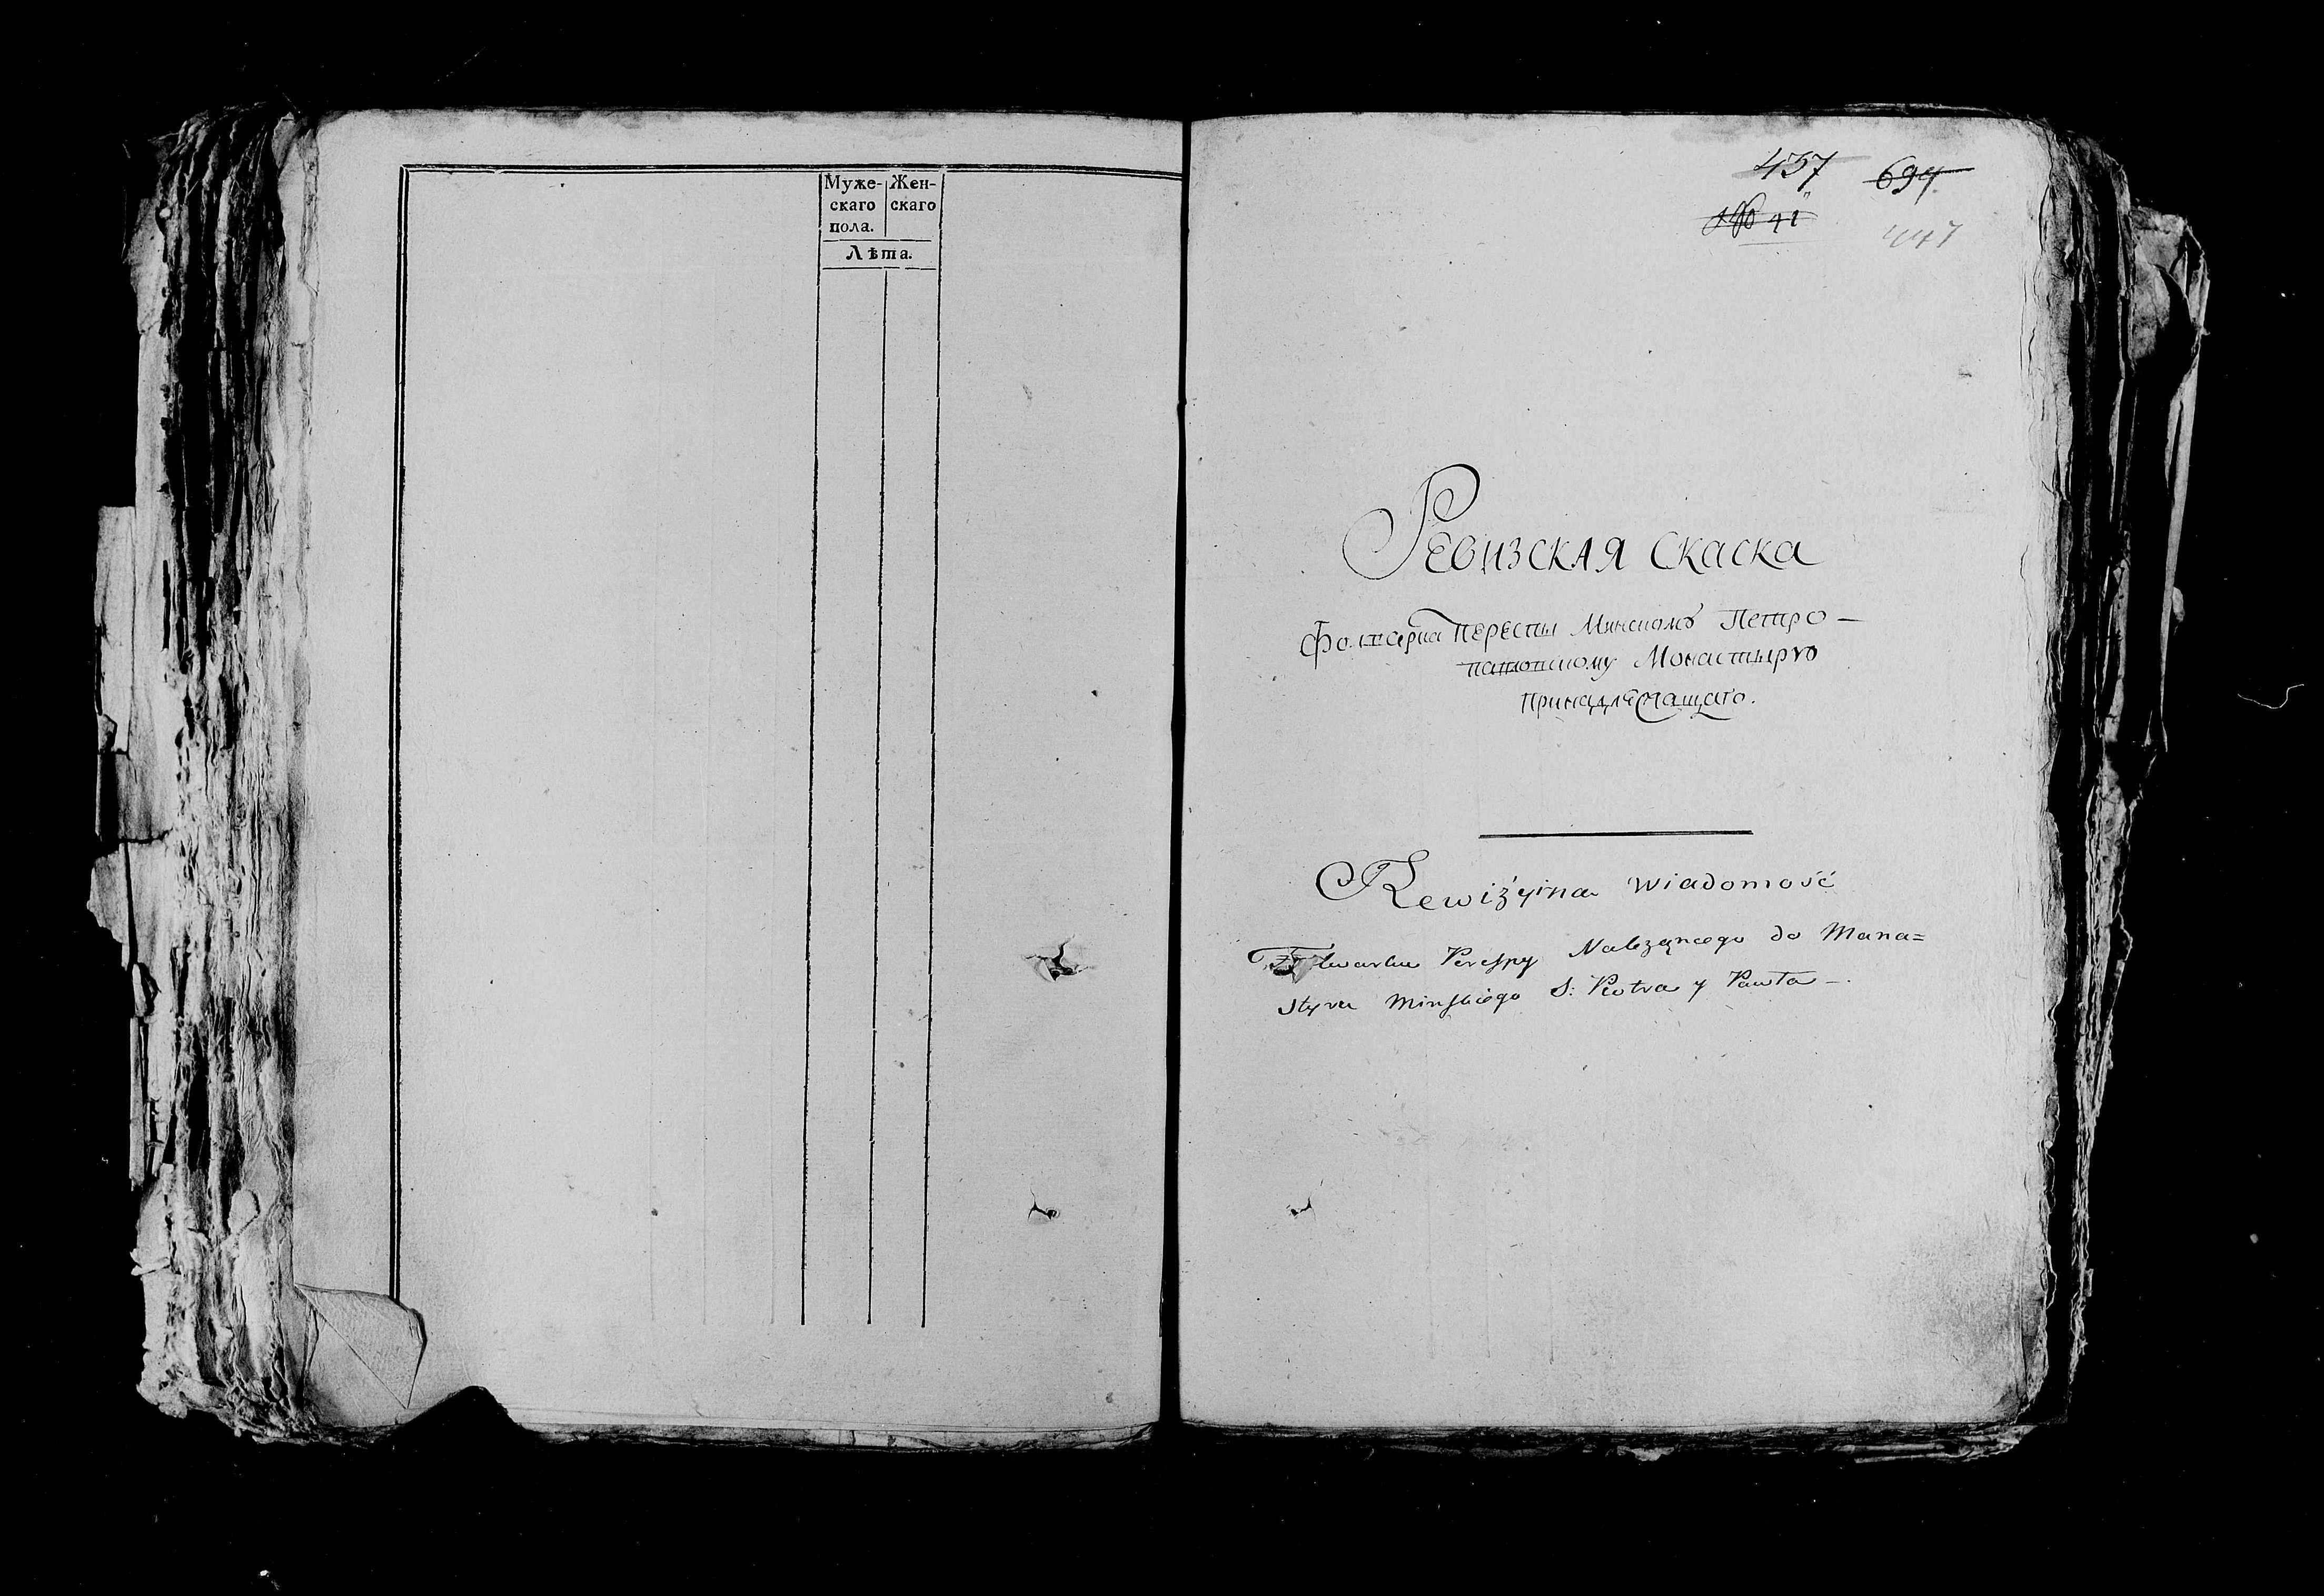 Муже- Жен-
скаго скаго
пола.
Лѣта.
457 694
№ 41
447
Ревизская скаска
Фольварка Переспы Минскомъ Петро-
павловскому Монастырю
Принадлежащаго.
Rewizyina wiadomość
Folwarku Perespy Należącego do Mana=
styru Minskiego S: Piotra y Pawła -.